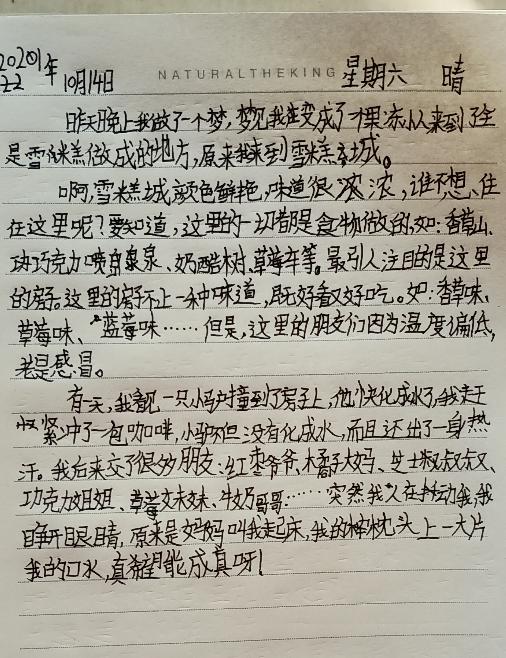 NATURALTHEKING
2020年 10月14日 星期六 晴
昨天晚上我做了一个梦,梦见我变成了果冻人来到了全
是雪糕做成的地方,原来我来到雪糕城。
啊,雪糕城颜色鲜艳,味道很浓浓,谁不想住
在这里呢?要知道,这里的一切都是食物做的,如:香草山、
巧克力喷泉、奶酪树、草莓车等。最引人注目的是这里
的房。这里的房不止一种味道,既好看又好吃。如:香草味、
草莓味、蓝莓味……但是,这里的朋友们因为温度偏低,
老是感冒。
有一天,我看见一只小驴撞到了房子上,他快化成水了,我赶
紧冲了一包咖啡,小驴不但没有化成水,而且还出了一身热
汗。我后来交了很多朋友:红枣爷爷、橘子大妈、芝士叔叔、
巧克力姐姐、草莓妹妹、牛奶哥哥……突然我人在抖动,我
睁开眼睛,原来是妈妈叫我起床,我的枕头上一大片
我的口水,真希望能成真呀!